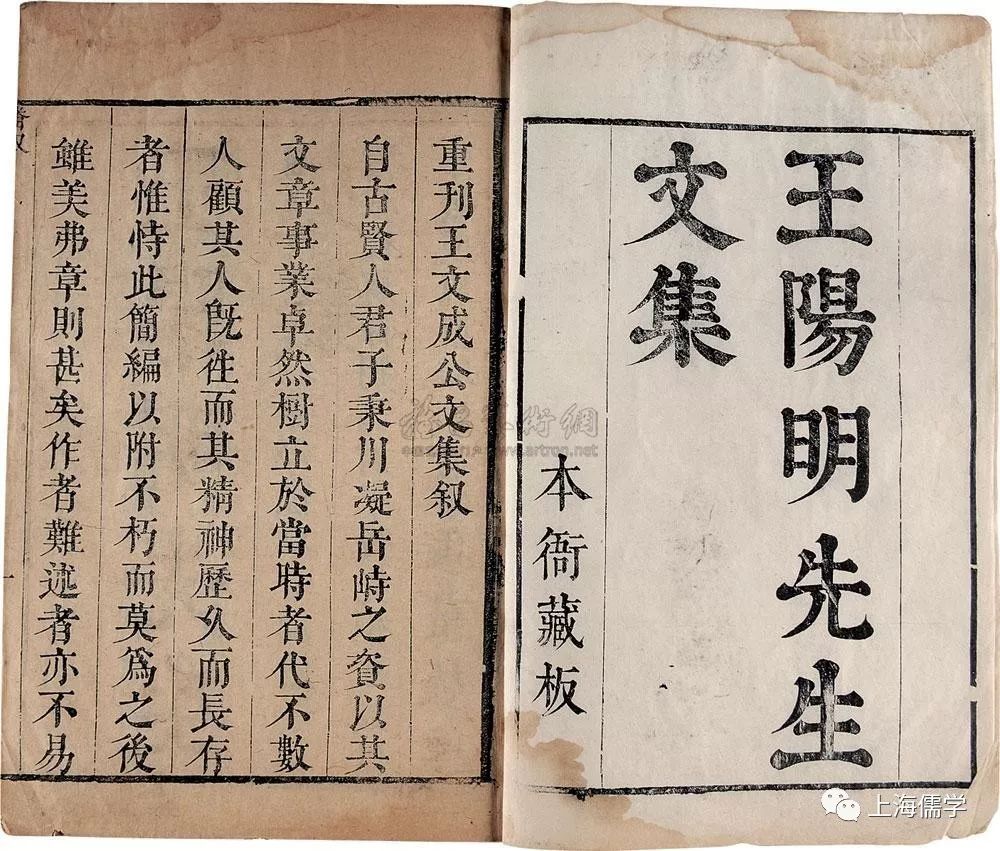 王陽明先生
文集
本衙藏板
重刊王文成公文集叙
自古賢人君子秉川凝岳峙之資以其
文章事業卓然樹立於當時者代不數
人顧其人旣徃而其精神歷久而長存
者惟恃此簡編以附不朽而莫爲之後
雖美弗章則甚矣作者難述者亦不易
www.artron.net
上海儒学